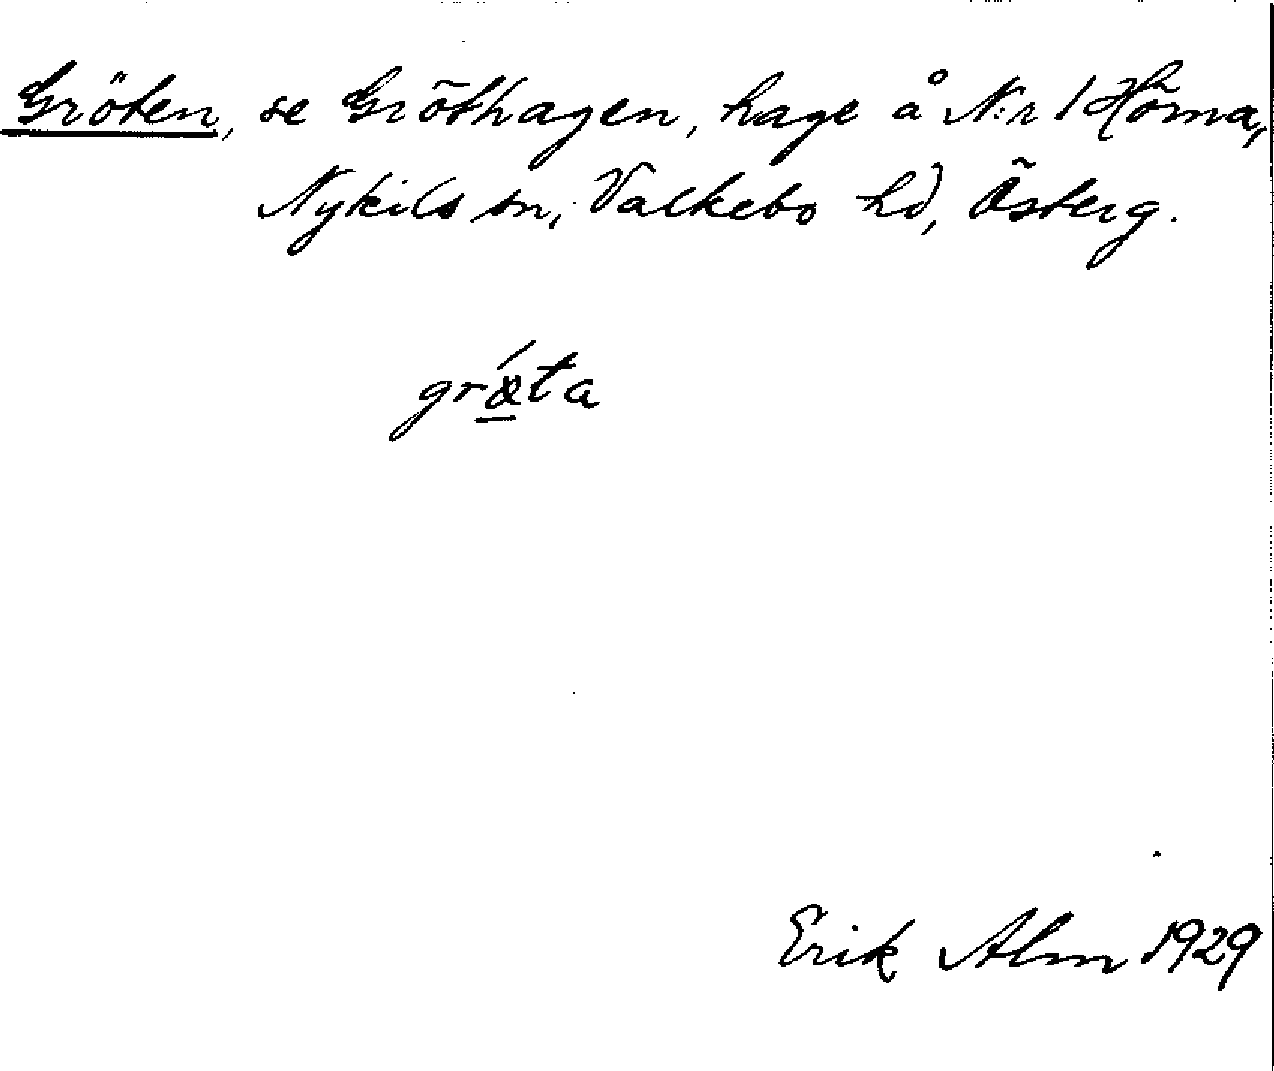 Gröten, se Gröthagen, hage å N:r 1 Höma,
Nykils sn, Valkebo hd, Österg.
grǿta
Erik Alm 1929